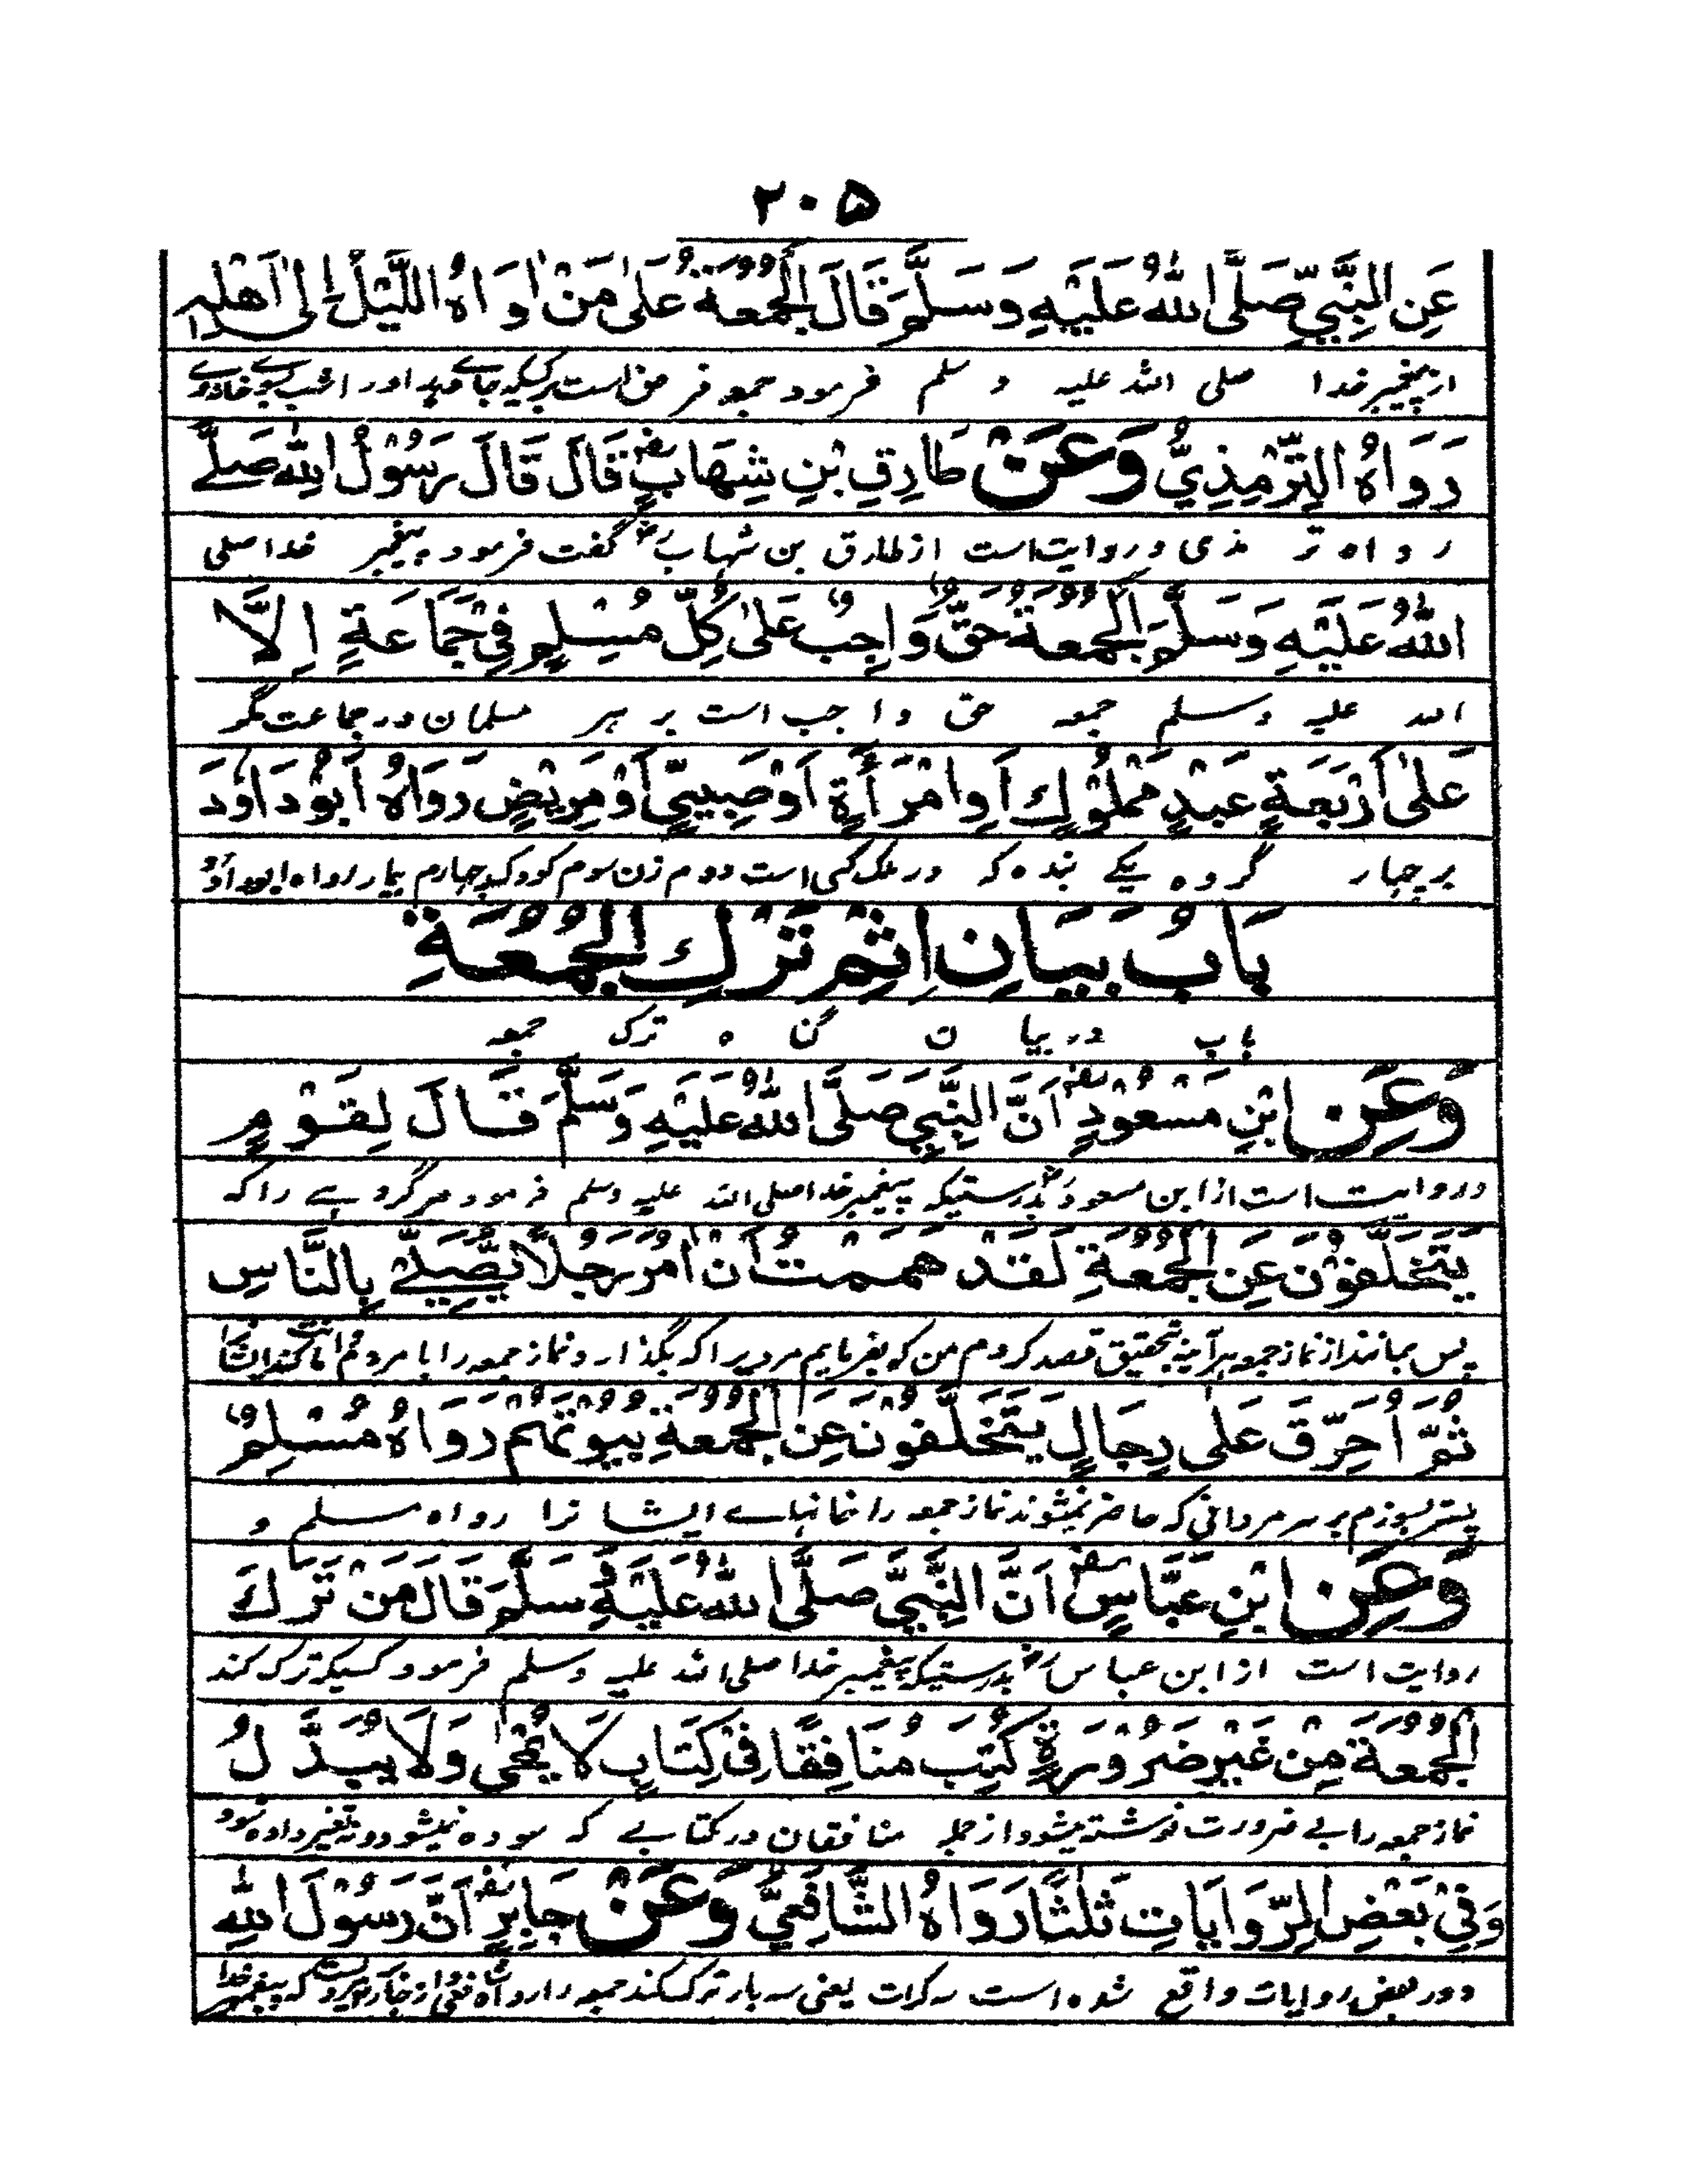 ۲۰۵
عَنِ النَّبِيِّ صَلَّى اللهُ عَلَيْهِ وَسَلَّمَ قَالَ الْجُمُعَةُ عَلٰى مَنْ اٰوَاهُ اللَّيْلُ اِلٰى اَهْلِهٖ
از پیغمبر خدا صلی الله علیه و سلم فرمود جمعه فرض است بر کسیکه جای دهد او را شب بسوے خانه وے
رَوَاهُ التِّرْمِذِيُّ وَعَنْ طَارِقِ بْنِ شِهَابٍ رض قَالَ قَالَ رَسُوْلُ اللهِ صَلَّے
رواه ترمذی و روایت است از طارق بن شهاب رض گفت فرمود پیغمبر خدا صلی
اللهُ عَلَيْهِ وَسَلَّمَ الْجُمُعَةُ حَقٌّ وَاجِبٌ عَلٰى كُلِّ مُسْلِمٍ فِيْ جَمَاعَةٍ اِلَّا
الله علیه وسلم جمعه حق واجب است بر هر مسلمان در جماعت مگر
عَلٰى اَرْبَعَةٍ عَبْدٍ مَمْلُوْكٍ اَوِ امْرَأَةٍ اَوْ صَبِيٍّ اَوْ مَرِيْضٍ رَوَاهُ اَبُوْ دَاوٗدَ
بر چهار گروه یکے بنده که در ملک کسی است دوم زن سوم کودک چهارم بیمار رواه ابوداود
بَابُ بَيَانِ اِثْمِ تَرْكِ الْجُمُعَةِ
باب در بیان گناه ترک جمعه
وَعَنِ ابْنِ مَسْعُوْدٍ رض اَنَّ النَّبِيَّ صَلَّى اللهُ عَلَيْهِ وَسَلَّمَ قَالَ لِقَوْمٍ
و روایت است از ابن مسعود رض بدرستیکه پیغمبر خدا صلی الله علیه وسلم فرمود مر گروهے را که
يَتَخَلَّفُوْنَ عَنِ الْجُمُعَةِ لَقَدْ هَمَمْتُ اَنْ اٰمُرَ رَجُلًا يُّصَلِّيْ بِالنَّاسِ
پس میمانند از نماز جمعه هر آئینه بتحقیق قصد کردم من که بفرمایم مردیرا که بگذارد نماز جمعه را با مردم
ثُمَّ اُحَرِّقَ عَلٰى رِجَالٍ يَتَخَلَّفُوْنَ عَنِ الْجُمُعَةِ بُيُوْتَهُمْ رَوَاهُ مُسْلِمٌ
پستر بسوزم بر سر مردانی که حاضر نمیشوند نماز جمعه را خانهاے ایشانرا رواه مسلم و
وَعَنِ ابْنِ عَبَّاسٍ رض اَنَّ النَّبِيَّ صَلَّى اللهُ عَلَيْهِ وَسَلَّمَ قَالَ مَنْ تَرَكَ
روایت است از ابن عباس رض بدرستیکه پیغمبر خدا صلی الله علیه وسلم فرمود کسیکه ترک کند
الْجُمُعَةَ مِنْ غَيْرِ ضَرُوْرَةٍ كُتِبَ مُنَافِقًا فِيْ كِتَابٍ لَا يُمْحٰى وَلَا يُبَدَّلُ
نماز جمعه را بے ضرورت نوشته میشود از جمله منافقان در کتابے که سوده نمیشود و نه تغیر داده شود
وَفِيْ بَعْضِ الرِّوَايَاتِ ثَلٰثًا رَوَاهُ الشَّافِعِيُّ وَعَنْ جَابِرٍ رض اَنَّ رَسُوْلَ اللهِ
و در بعض روایات واقع شده است سه کرات یعنی سه بار ترک کند جمعه را رواه شافعی و از جابر که پیغمبر خدا